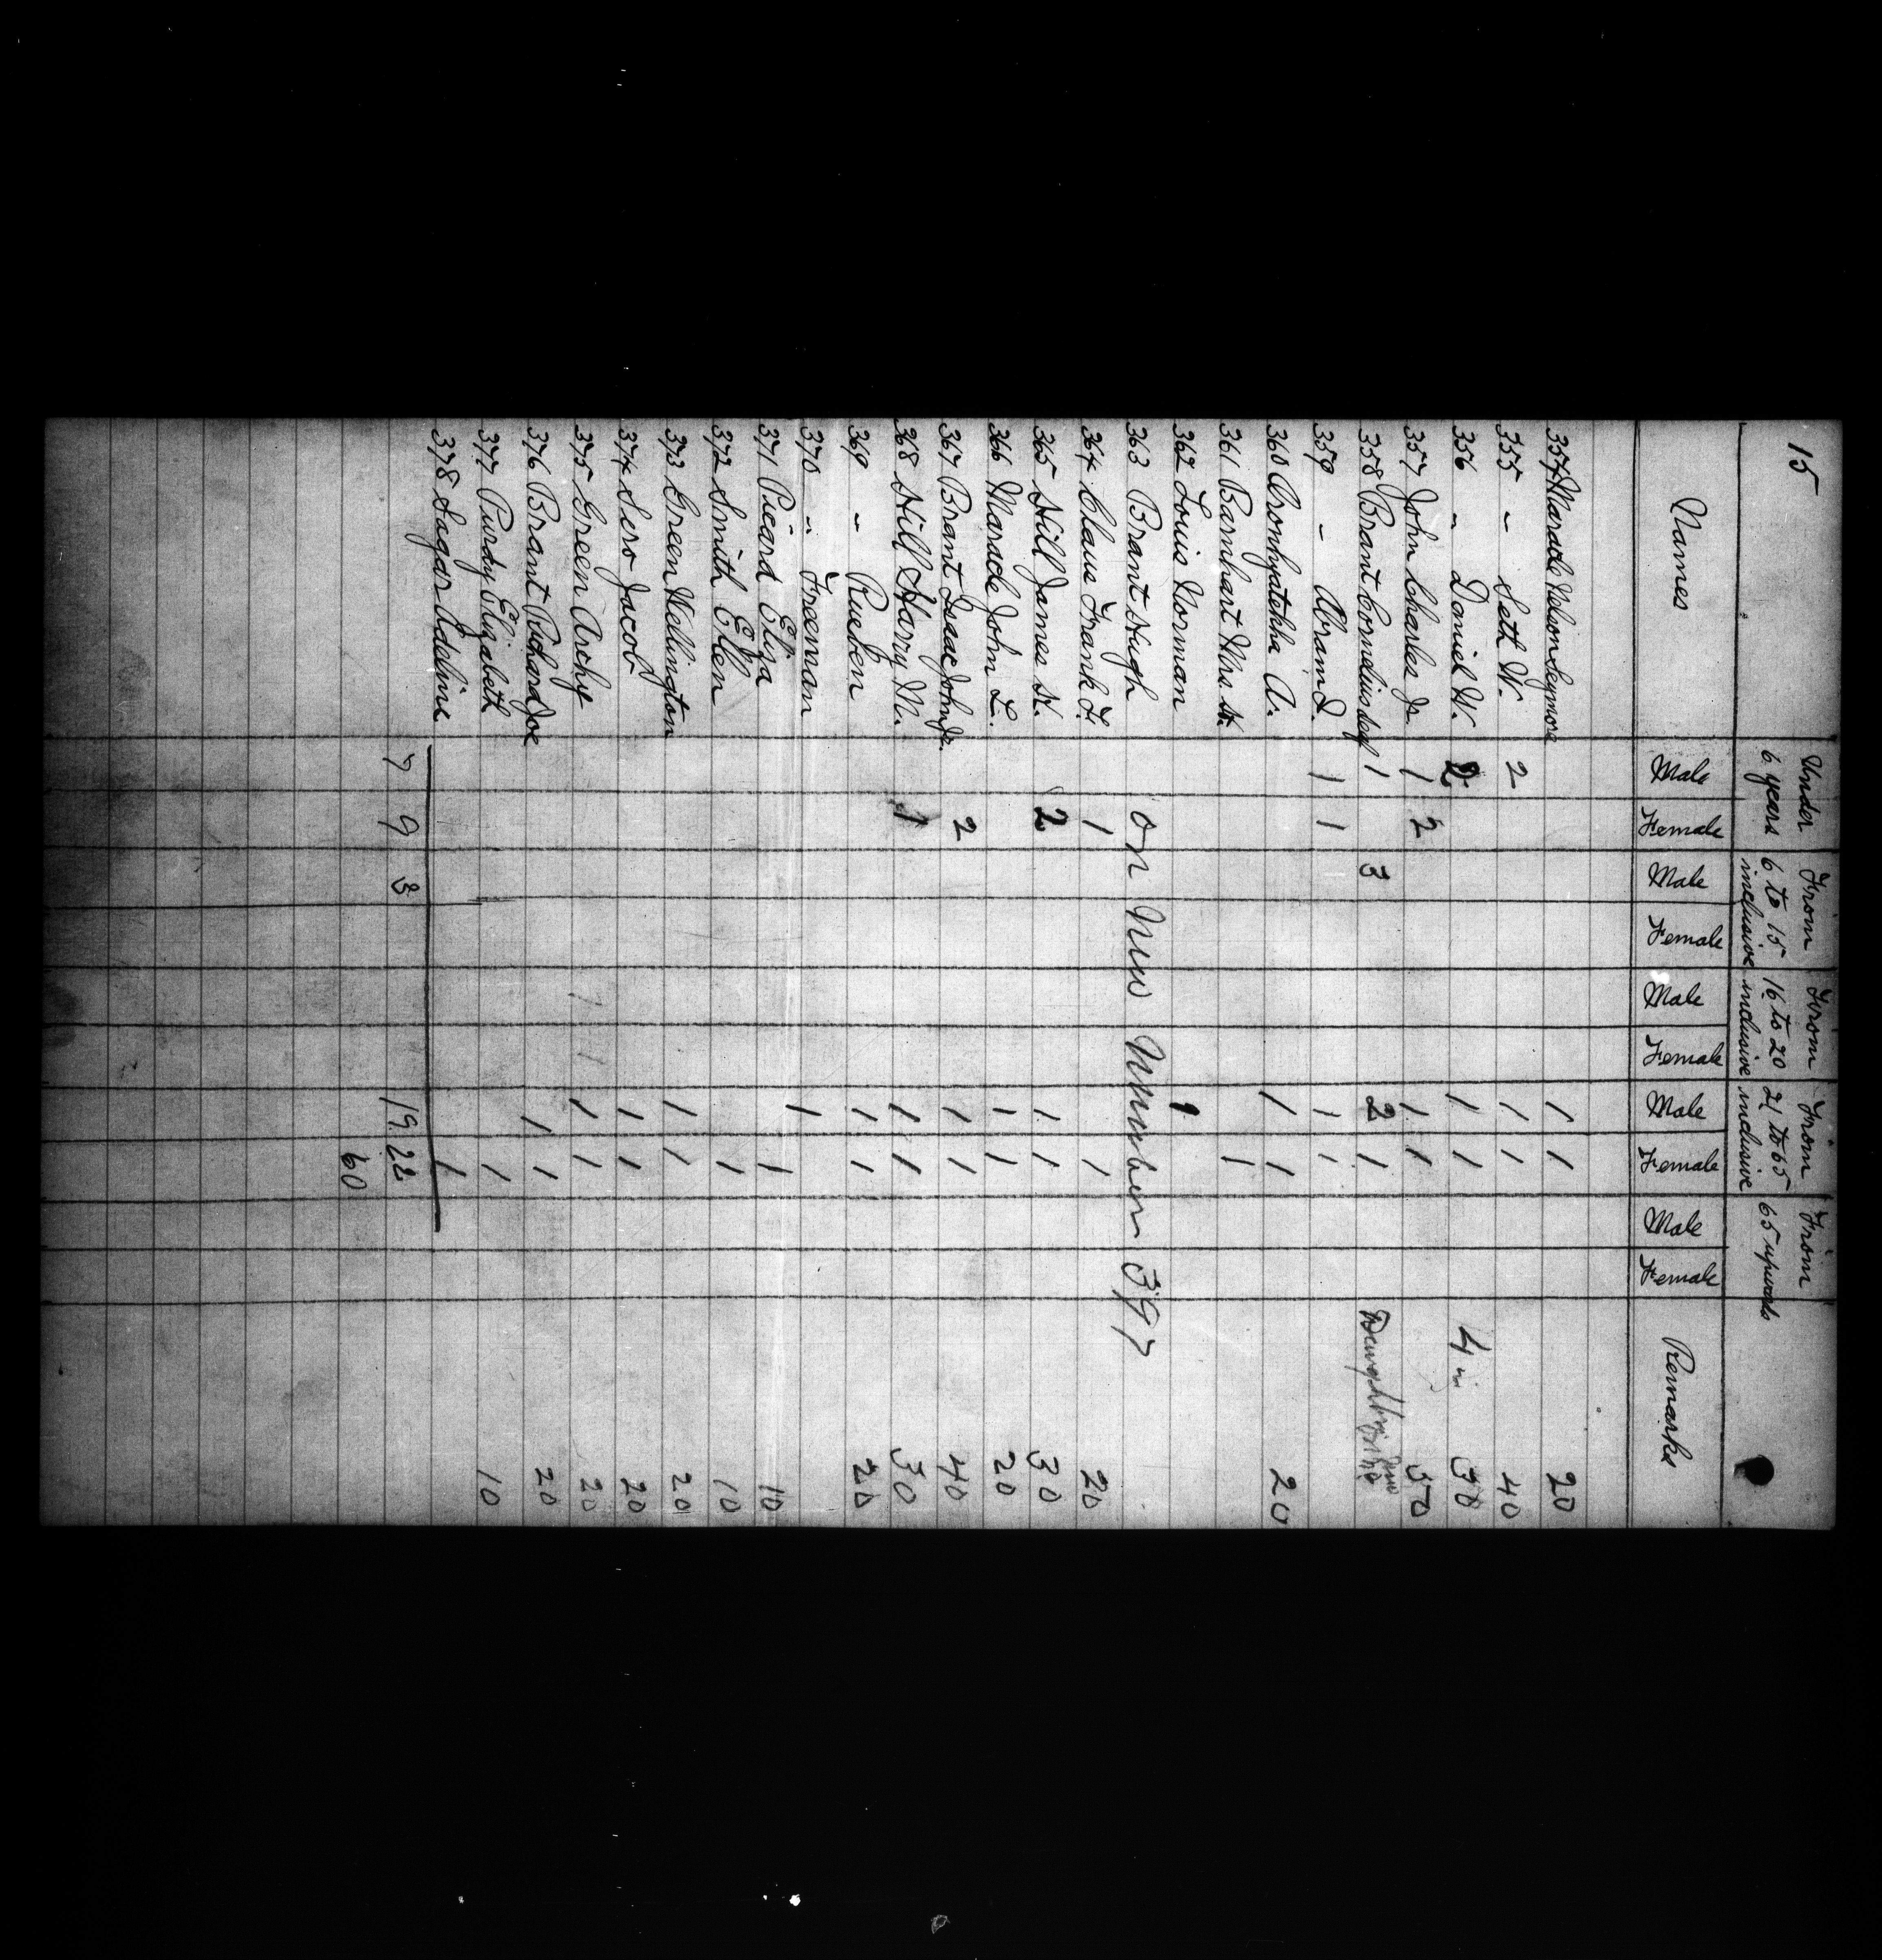 15
Under 6 years From 6 to 15 inclusive From 16 to 20 inclusive From 21 to 65 inclusive From 65 upwards
Names Male Female Male Female Male Female Male Female Male Female Remarks
354 Maracle Nelson Seymore 1 1 20
355 " Seth W. 2 1 1 40
356 " Daniel W. 2 1 1 4 in 30
357 John Charles Jr. 1 2 1 1 50
358 Brant Cornelius 1 3 2 1
359 " Abram D. 1 1 1 1
360 Oronhyatekha A. 1 1 20
361 Barnhart Mrs H. 1
362 Louis Norman 1
363 Brant Hugh on New Number 397
364 Claus Frank F. 1 1 20
365 Hill James H. 2 1 1 30
366 Maracle John L. 1 1 20
367 Brant Isaac John Jr. 2 1 1 40
368 Hill Harry M. 1 1 1 30
369 " Rueben 1 1 20
370 " Freeman 1
371 Picard Eliza 1 10
372 Smith Ellen 1 10
373 Green Wellington 1 1 20
374 Sero Jacob 1 1 20
375 Green Archy 1 1 20
376 Brant Richard Joe 1 1 20
377 Purdy Elizabeth 1 10
378 Sagar Adeline 1
7 9 3 19 22
60